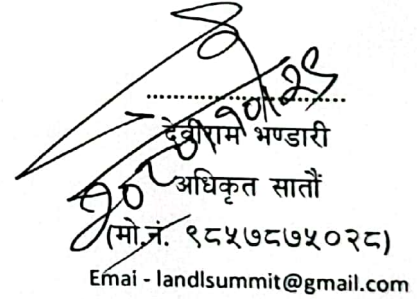 देवीराम भण्डारी
अधिकृत सातौं
(मो.नं. ९८५७८७५०२८)
Emai - landlsummit@gmail.com